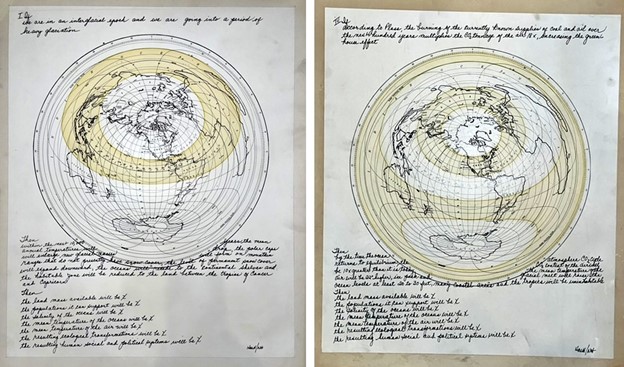 I. If
we are in an interglacial epoch and we are going into a period of
heavy glaciation
Then
within the next years the mean
annual temperatures will drop, the polar caps
will enlarge, new glacial will form on mountain
ranges that do not presently have snow cover, the level of permanent snow cover
will expand downward, the ocean will to the continental shelves and
the habitable land will be reduced to the land between the Tropics of Cancer
and Capricorn
Then
the land mass available will be X
the populations it can support will be X
the salinity of the oceans will be X
the mean temperature of the oceans will be X
the mean temperature of the air will be X
the resulting ecological transformations will be X
the resulting human social and political systems will be X
II. If
according to Plass, the burning of the currently known supplies of coal and oil over
the next hundred years multiplies the CO2 tonnage of the air 18 x, increasing the green
house effect
Then
by the time the ocean atmosphere CO2 cycle
returns to equilibrium the CO2 content of the air will
be 10 x greater than it is today the mean temperature of the
air will be higher, the polar and glacial melt will raise the
ocean levels at least 20 to 30 feet, many coastal areas and the tropics will be uninhabitable
Then
the land mass available will be X
the populations it can support will be X
the salinity of the oceans will be X
the mean temperature of the oceans will be X
the mean temperature of the air will be X
the resulting ecological transformations will be X
the resulting human social and political systems will be X